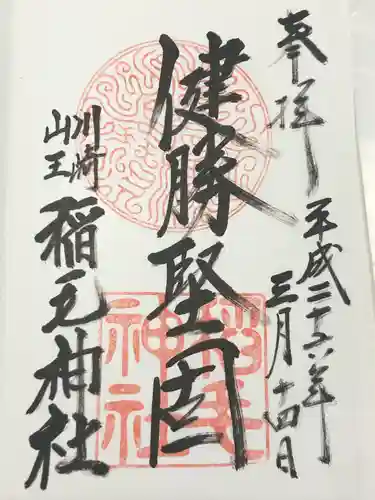 奉拝
平成二十六年
三月十四日
健勝堅固
川崎
山王
稲毛神社
稲毛神社